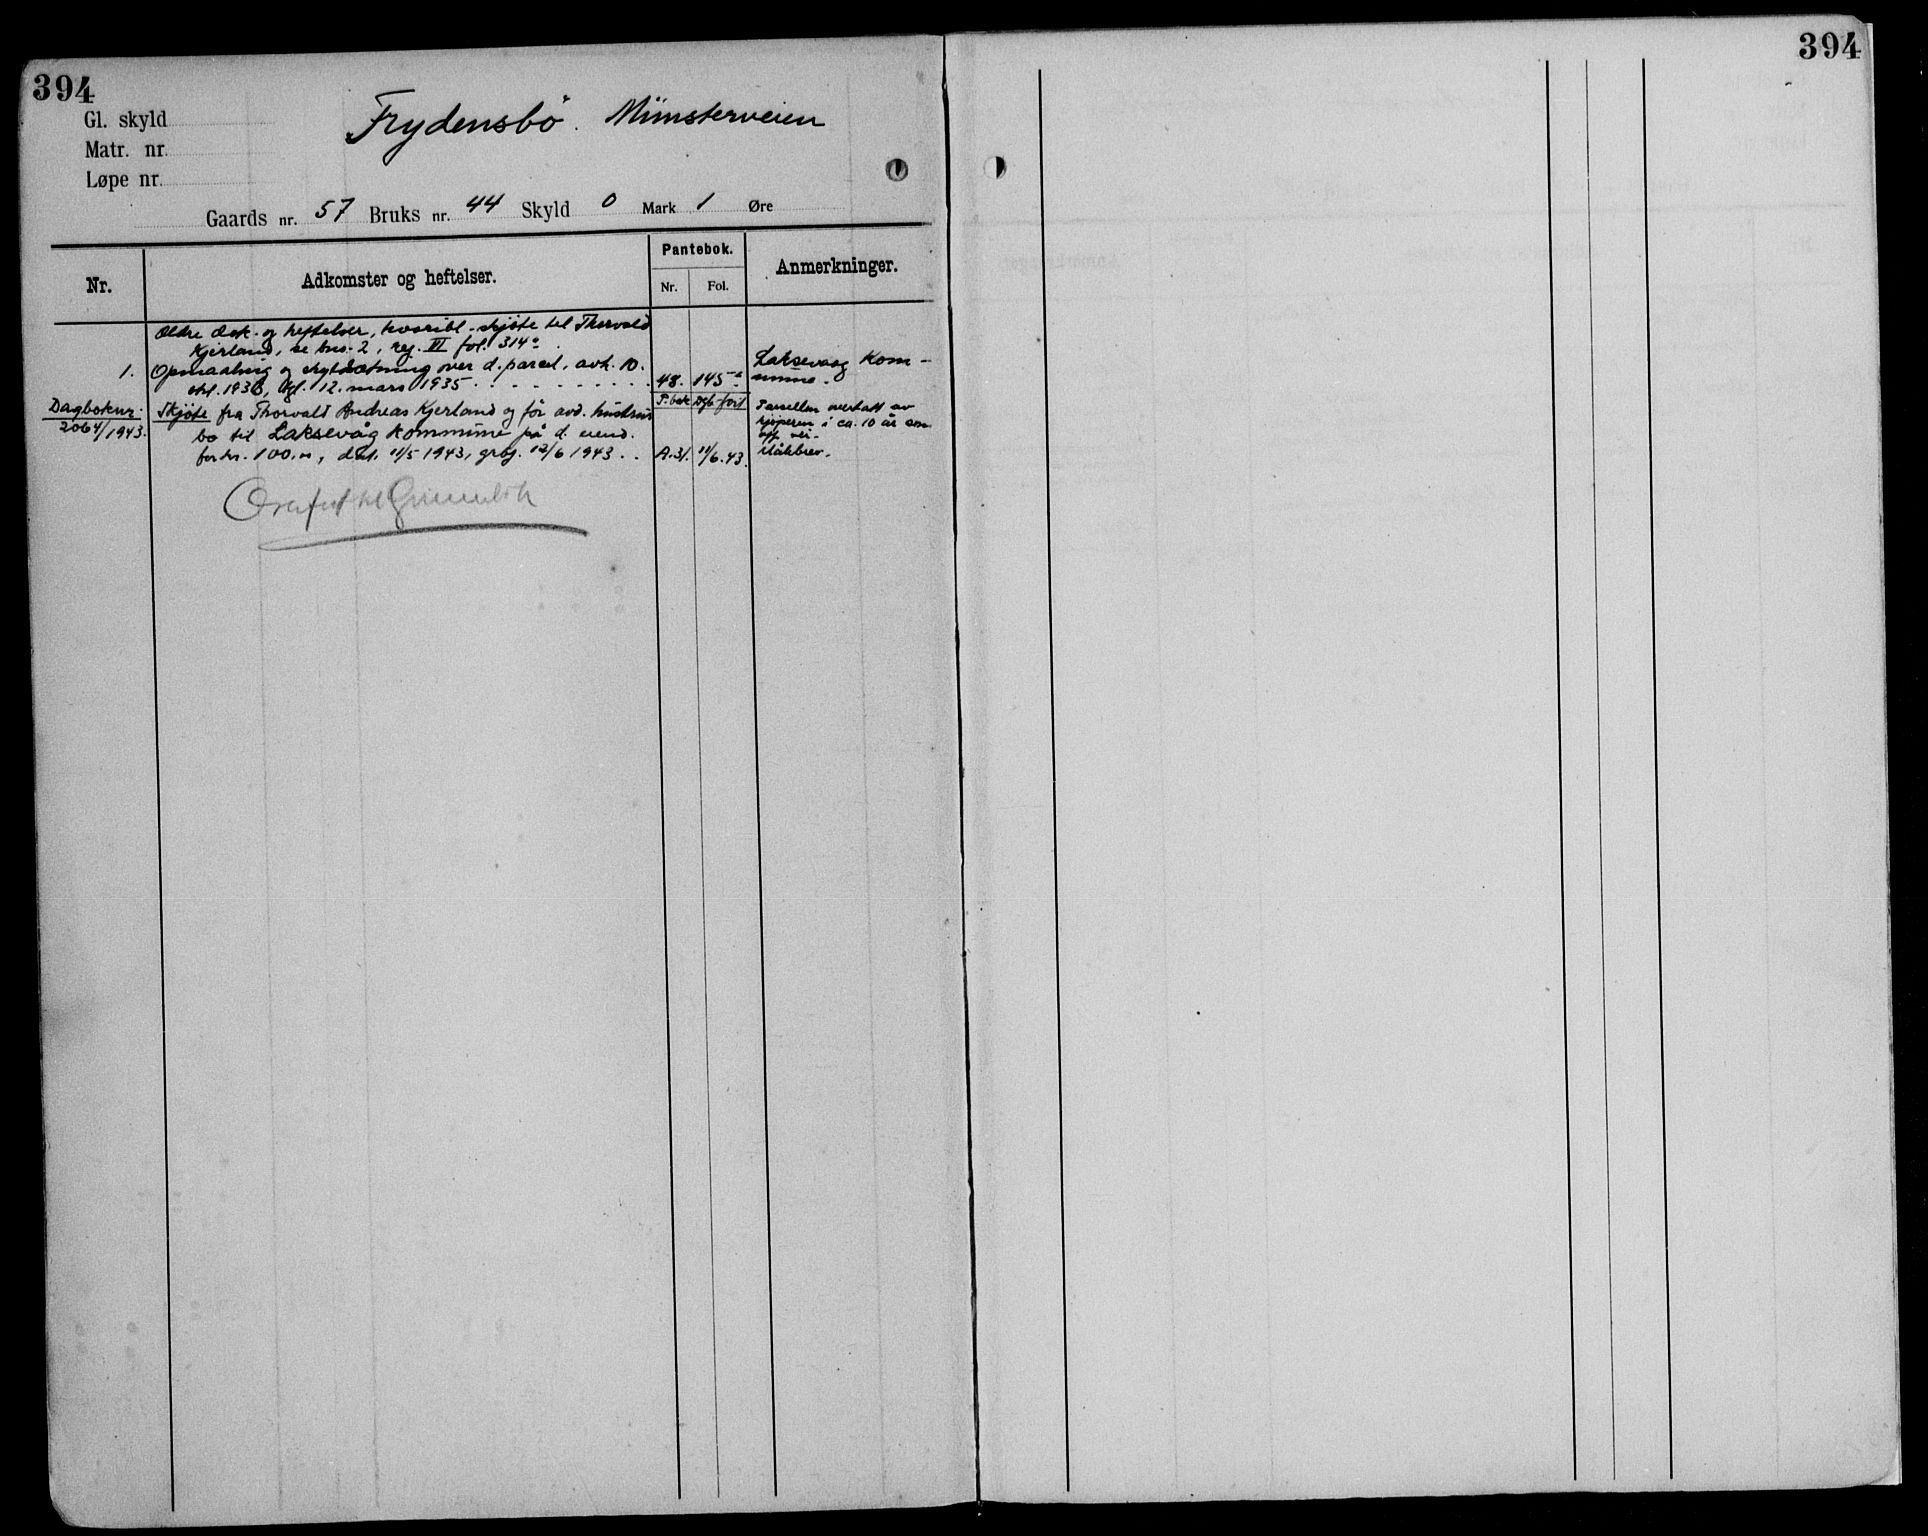 394
394
Gl. skyld
Matr. nr.
Løpe nr.
Frydensbö. Münsterveien
Gaards nr. 57 Bruks nr. 44 Skyld 0 Mark 1 Øre
Nr.
Adkomster og heftelser.
Pantebok.
Nr.
Fol.
Anmerkninger.
Ældre dok. og heftelser, hvoribl. skjöte til Thorvald
Kjerland, se bnr. 2, reg. VI fol. 314a.
1. Opmaaling og skyldsætning over d. parcel, avh. 10.
okt. 1933, tgl. 12. mars 1935 . . . . . . . . . 48. 145a.
Laksevaag Kom-
mune.
P.bok Dgb-fört
Dagboknr.
2064/1943.
Skjöte fra Thorvald Andreas Kjerland og för avd. hustrus
bo til Laksevåg kommune på d. eiend.
for kr. 100.00, dat. 11/5 1943, grbj. 12/6 1943 . . A.31. 11/6.43.
Parsellen overtatt av
kjöperen i ca. 10 år som
off. vei.
Målebrev.
Overfört til Grunnbok